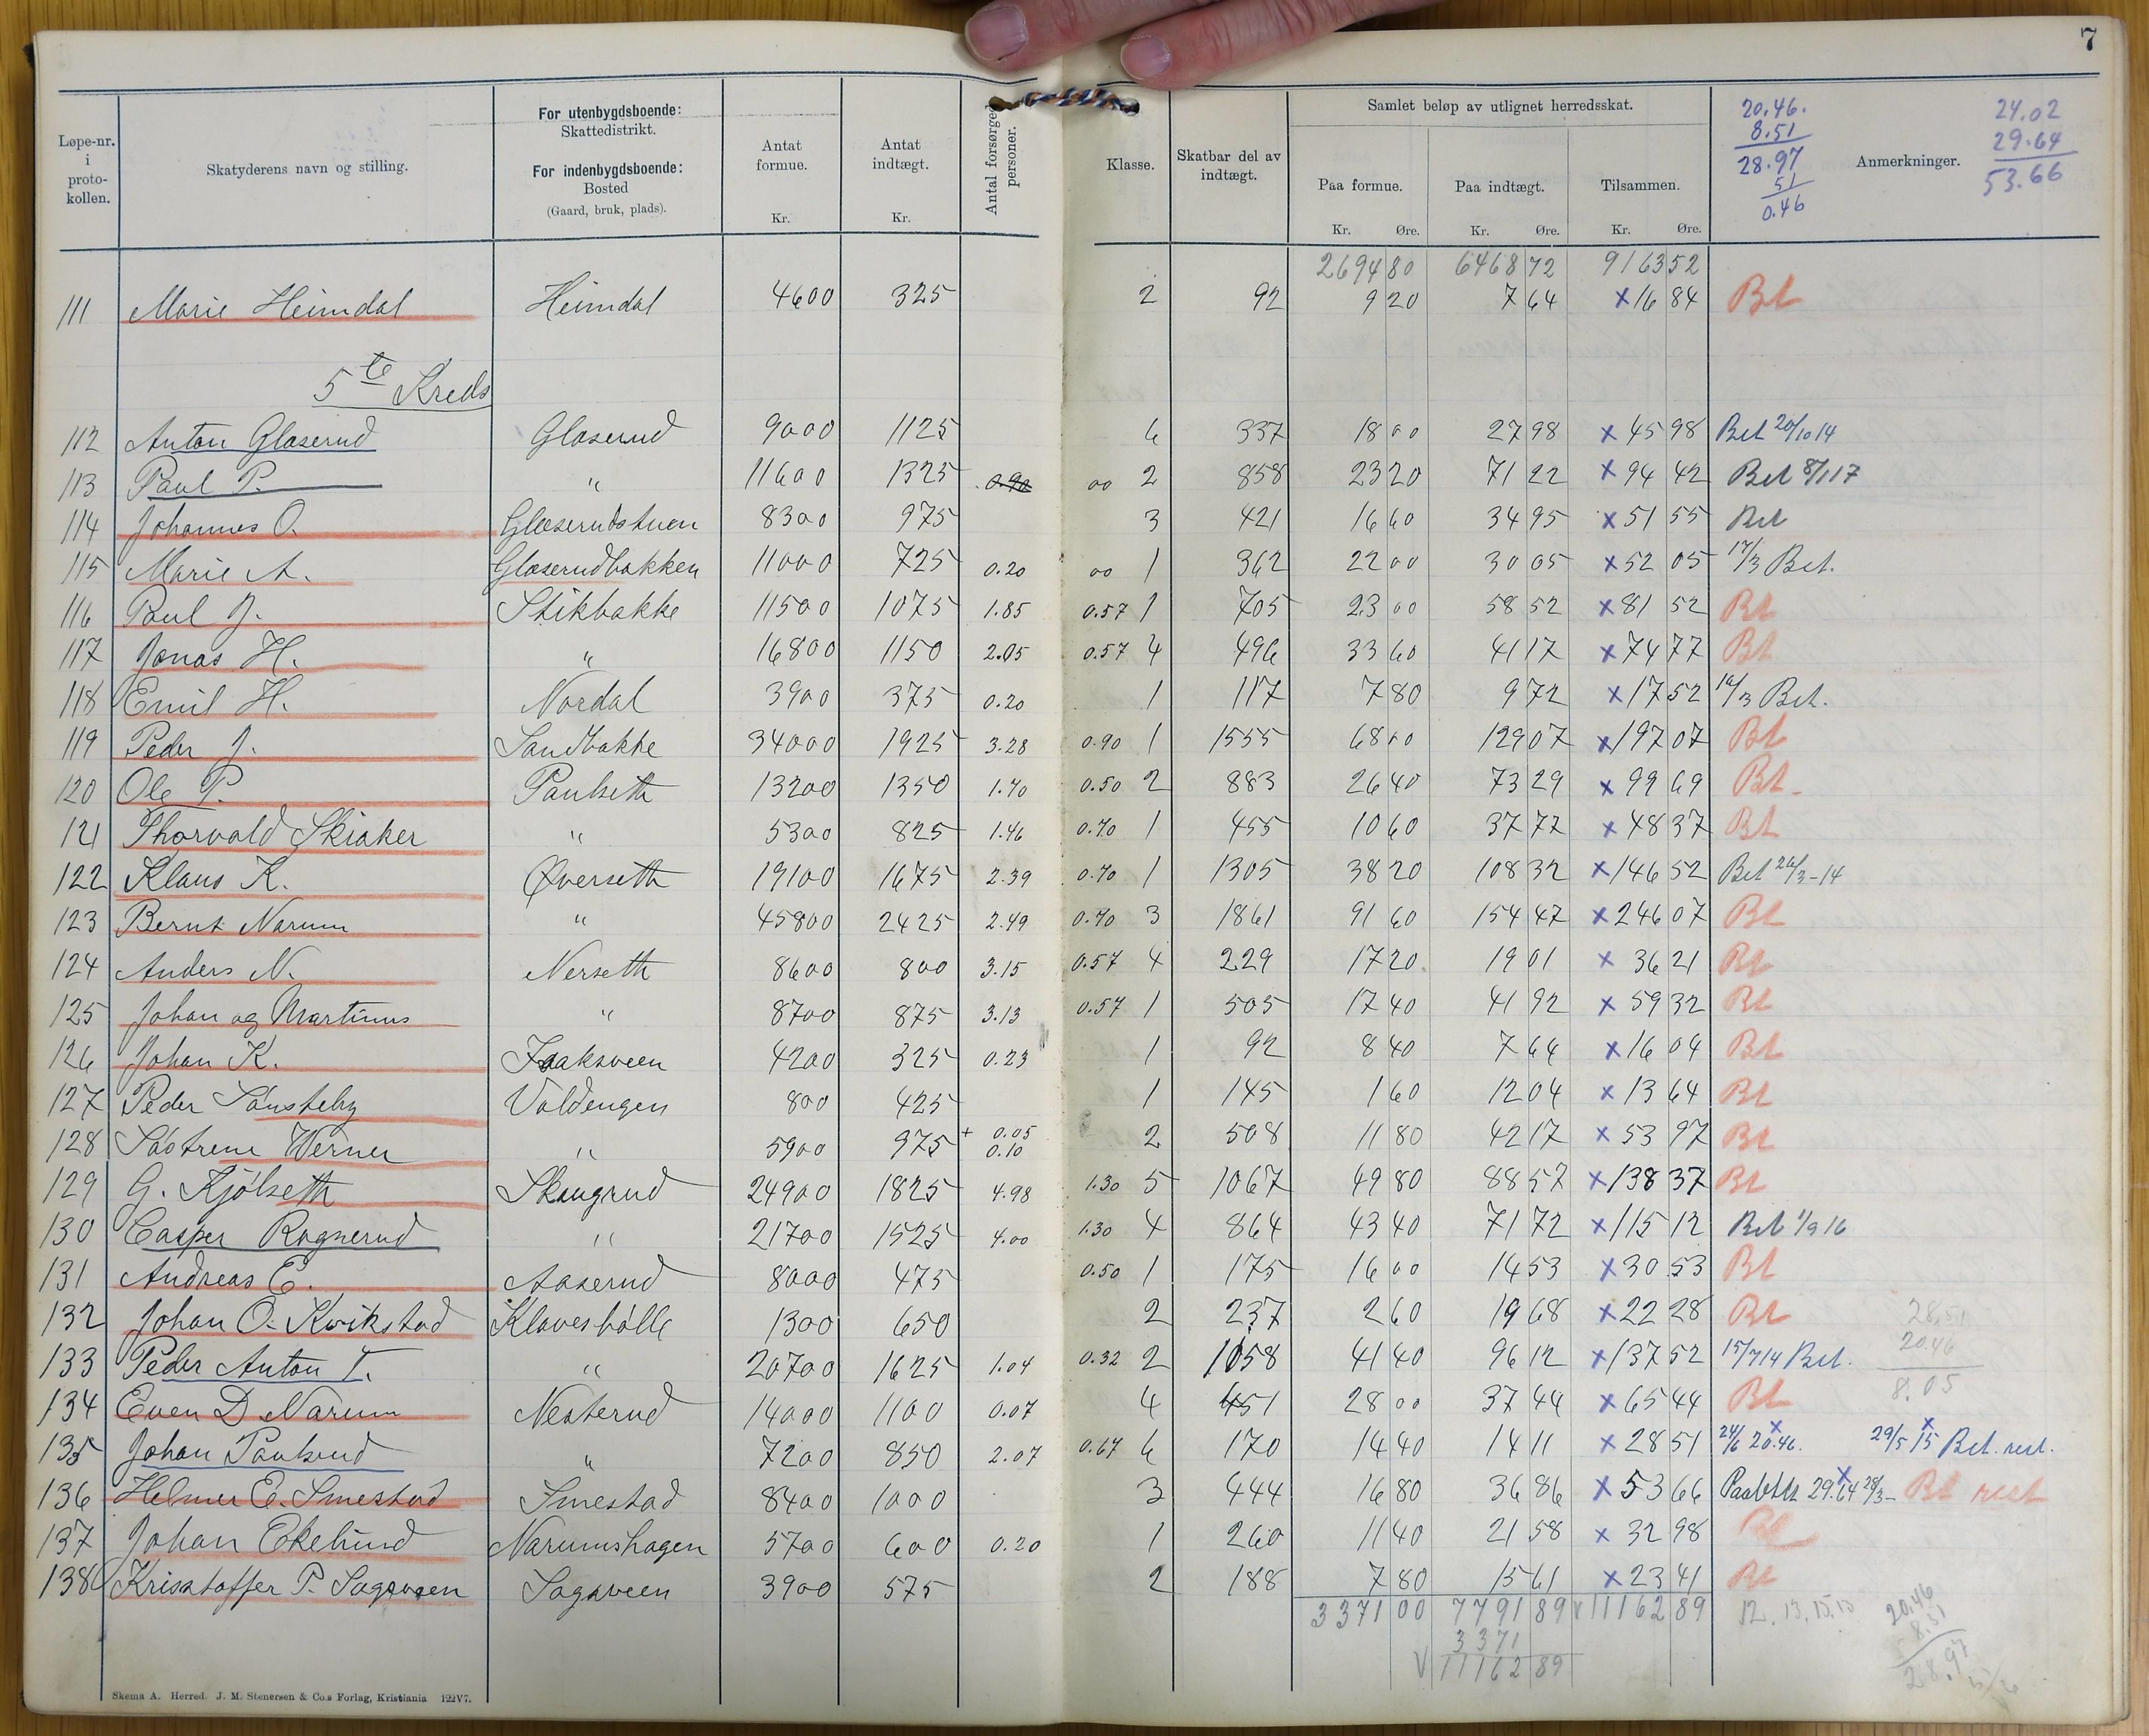 7
Løpe-nr. i proto-kollen. Skatyderens navn og stilling. For utenbygdsboende: Skattedistrikt. For indenbygdsboende: Bosted (Gaard, bruk, plads). Antat formue. Kr. Antat indtægt. Kr. Antal forsørgede personer. Klasse. Skatbar del av indtægt. Samlet beløp av utlignet herredsskat. Paa formue. Kr. Øre. Paa indtægt. Kr. Øre. Tilsammen. Kr. Øre. Anmerkninger.
20.46.
8.51
28.97
51
0.46
24.02
29.64
53.66
2694 80 6468 72 9163 52
111 Marie Heimdal Heimdal 4600 325 2 92 9 20 7 64 x16 84 Bet
5te Kreds
112 Anton Glæserud Glæserud 9000 1125 6 337 18 00 27 98 x 45 98 Bet 20/10 14
113 Paul P. " 11600 1325 0.90 00 2 858 23 20 71 22 x 94 42 Bet 8/1 17
114 Johannes O. Glæserudstuen 8300 975 3 421 16 60 34 95 x 51 55 Bet
115 Marie A. Glæserudbakken 11000 725 0.20 00 1 362 22 00 30 05 x 52 05 17/3 Bet.
116 Paul J. Stikbakke 11500 1075 1.85 0.57 1 705 23 00 58 52 x 81 52 Bet
117 Jonas H. " 16800 1150 2.05 0.57 4 496 33 60 41 17 x 74 77 Bet
118 Emil H. Nordal 3900 375 0.20 1 117 7 80 9 72 x 17 52 16/3 Bet.
119 Peder J. Sandbakke 34000 1925 3.28 0.90 1 1555 68 00 129 07 x 197 07 Bet
120 Ole P. Paulseth 13200 1350 1.70 0.50 2 883 26 40 73 29 x 99 69 Bet
121 Thorvald Skiaker " 5300 825 1.46 0.70 1 455 10 60 37 77 x 48 37 Bet
122 Klaus K. Øverseth 19100 1675 2.39 0.70 1 1305 38 20 108 32 x 146 52 Bet 26/3-14
123 Bernt Narum " 45800 2425 2.49 0.70 3 1861 91 60 154 47 x 246 07 Bet
124 Anders N. Nerseth 8600 800 3.15 0.57 4 229 17 20 19 01 x 36 21 Bet
125 Johan og Martinus " 8700 875 3.13 0.57 1 505 17 40 41 92 x 59 32 Bet
126 Johan K. Faaksveen 4200 325 0.23 1 92 8 40 7 64 x 16 04 Bet
127 Peder Sønsteby Voldengen 800 425 1 145 1 60 12 04 x 13 64 Bet
128 Søstrene Werner " 5900 975 + 0.05 0.10 2 508 11 80 42 17 x 53 97 Bet
129 G. Kjølseth Skougrud 24900 1825 4.98 1.30 5 1067 49 80 88 57 x 138 37 Bet
130 Casper Rognerud " 21700 1525 4.00 1.30 4 864 43 40 71 72 x 115 12 Bet 1/9 16
131 Andreas E. Aaserud 8000 475 0.50 1 175 16 00 14 53 x 30 53 Bet
132 Johan O. Kvikstad Klæveshølle 1300 650 2 237 2 60 19 68 x 22 28 Bet
133 Peder Anton T. " 20700 1625 1.04 0.32 2 1058 41 40 96 12 x 137 52 15/7 14 Bet.
28.51
20.46
8.05
134 Even D. Narum Nesterud 14000 1100 0.07 4 451 28 00 37 44 x 65 44 Bet
135 Johan Paulsrud " 7200 850 2.07 0.67 6 170 14 40 14 11 x 28 51 24/6 20.46. x 29/5 15 x Bet. rest.
136 Helmer E. Smestad Smestad 8400 1000 3 444 16 80 36 86 x 53 66 29.64 x 28/3- Bet rest
137 Johan Ekelund Narumshagen 5700 600 0.20 1 260 11 40 21 58 x 32 98 Bet
138 Kristoffer P. Sagaveen Sagaveen 3900 575 2 188 7 80 15 61 x 23 41 Bet
3371 00 7791 89 v 11162 89
3371
v 11162 89
20.46
8.51
28.97
Skema A. Herred. J. M. Stenersen & Co.s Forlag, Kristiania 122V7.